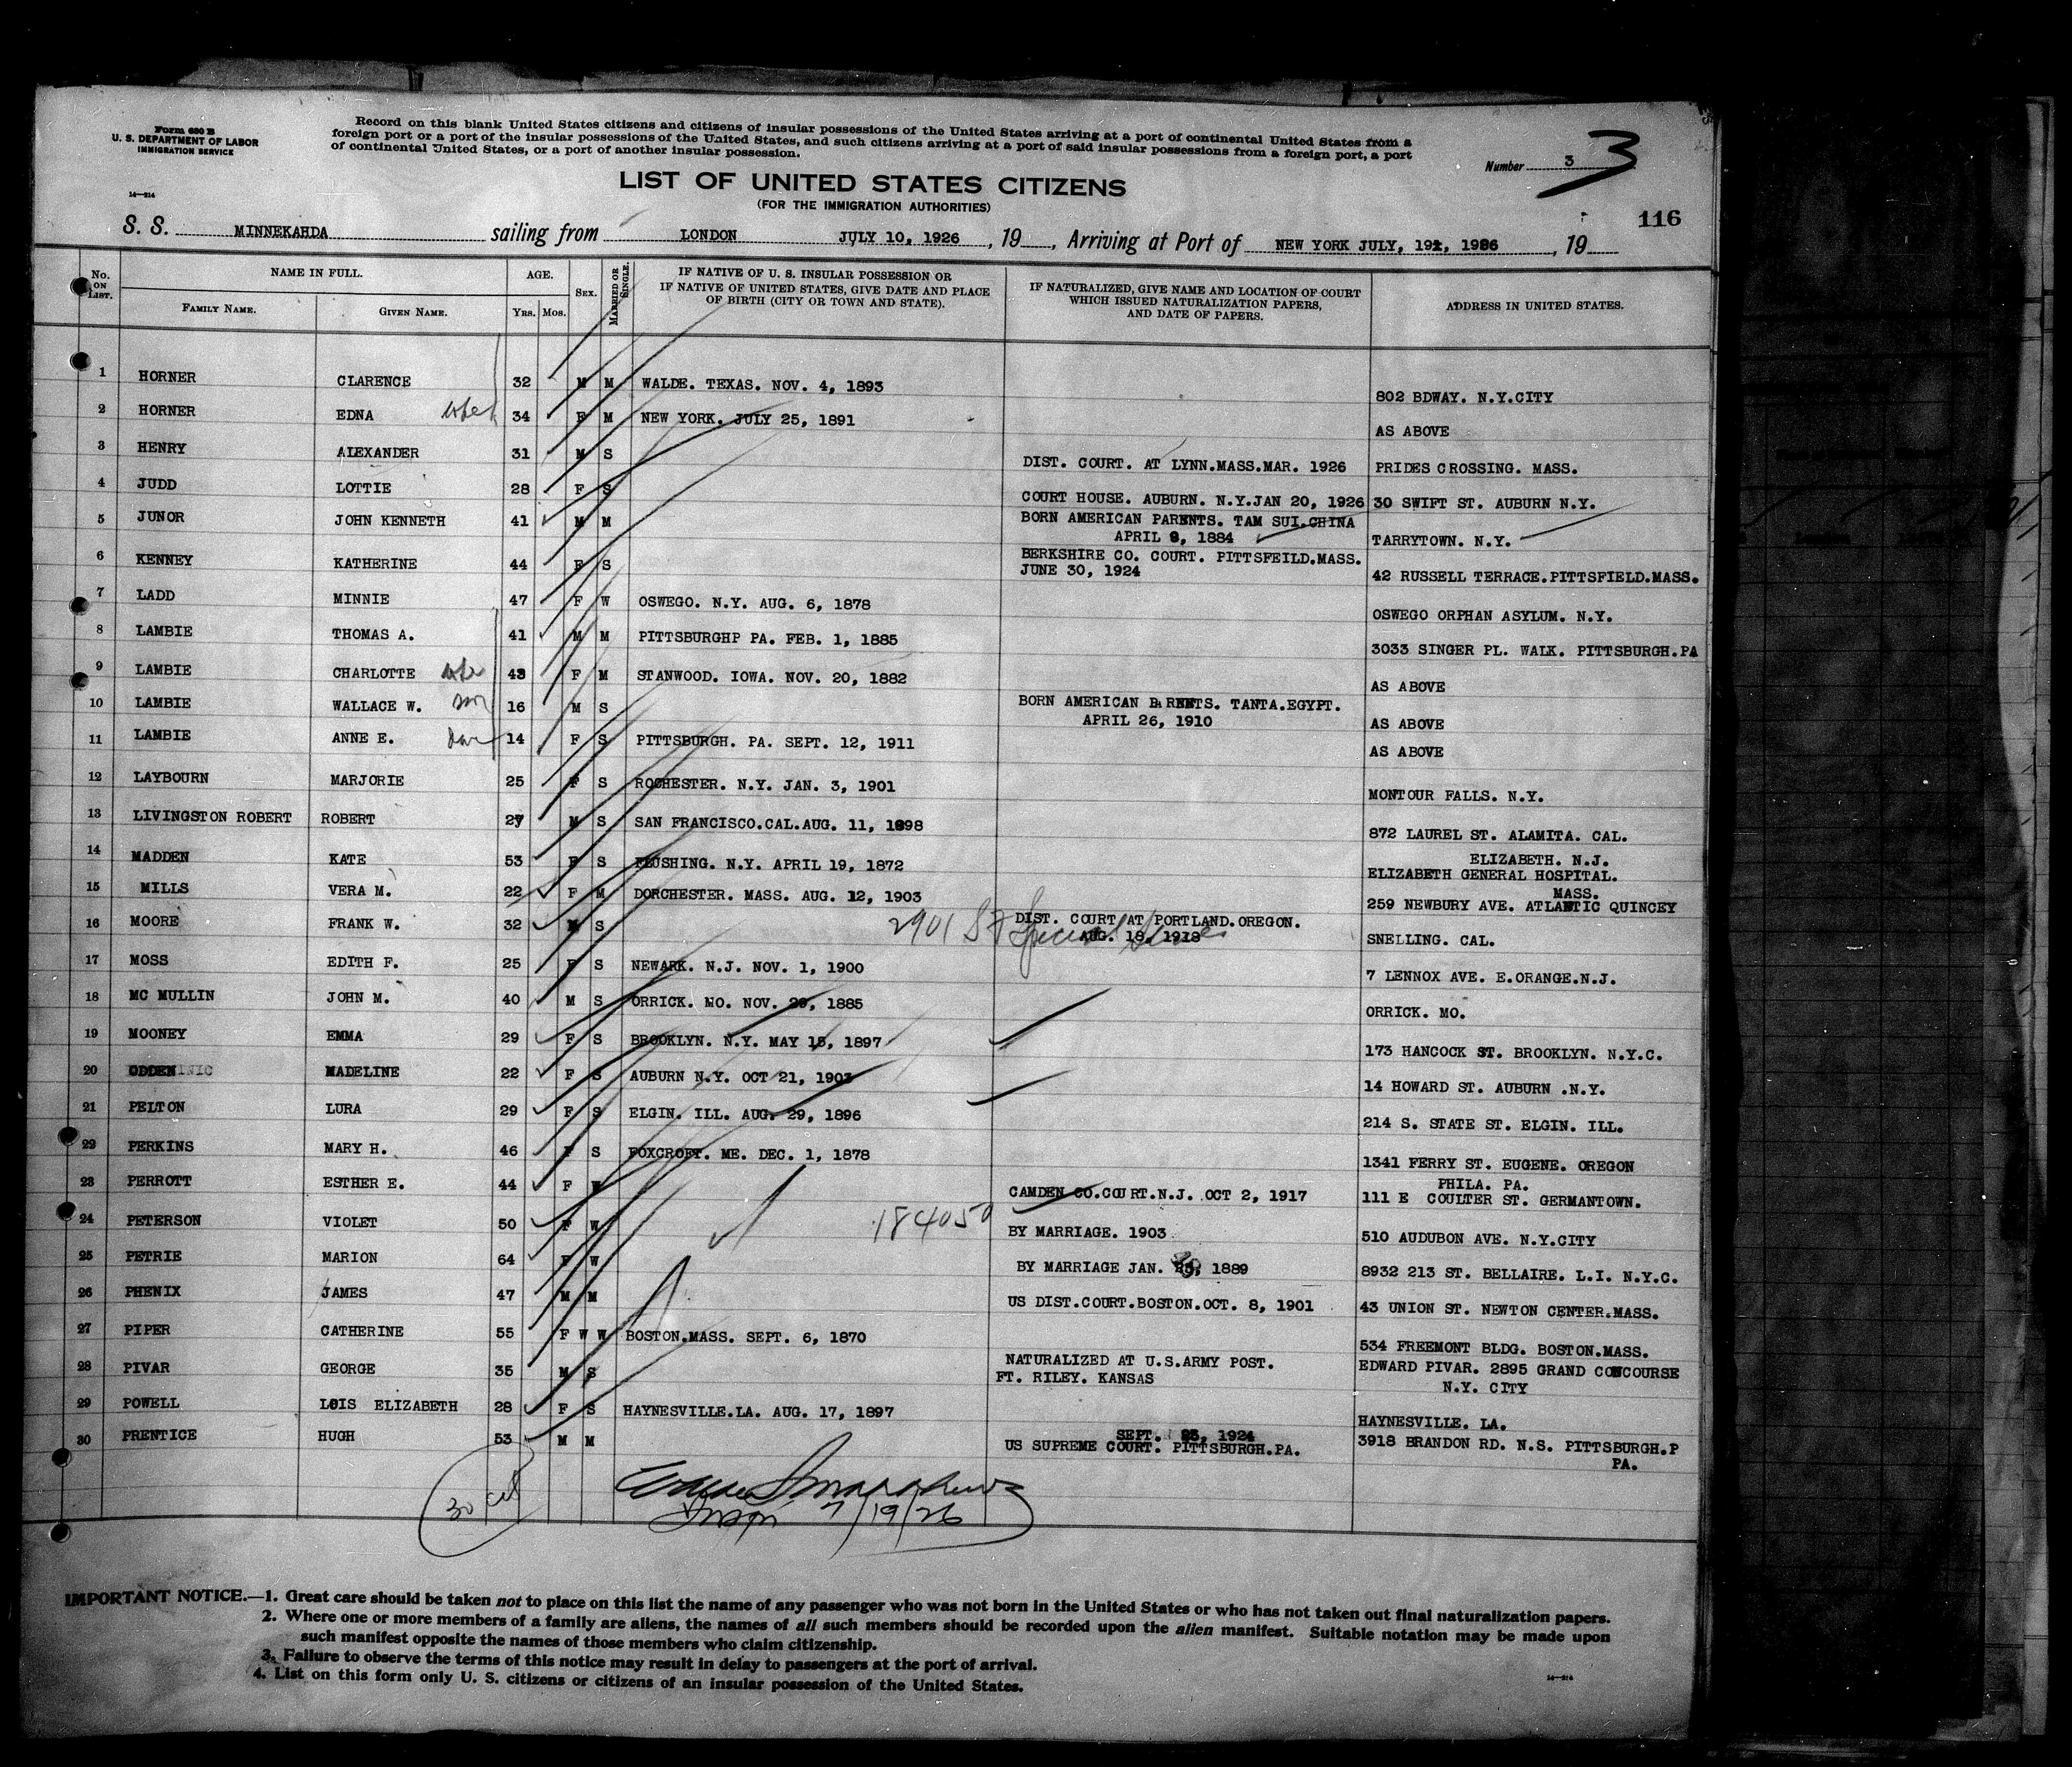 Form 630 B
U. S. DEPARTMENT OF LABOR
IMMIGRATION SERVICE
14—214
Record on this blank United States citizens and citizens of insular possessions of the United States arriving at a port of continental United States from a
foreign port or a port of the insular possessions of the United States, and such citizens arriving at a port of said insular possessions from a foreign port, a port
of continental United States, or a port of another insular possession.
Number 3 3
LIST OF UNITED STATES CITIZENS
(FOR THE IMMIGRATION AUTHORITIES)
116
S. S. MINNEKAHDA sailing from LONDON JULY 10, 1926, 19 , Arriving at Port of NEW YORK JULY, , 19
No. ON LIST. NAME IN FULL. AGE. SEX. MARRIED OR SINGLE. IF NATIVE OF U. S. INSULAR POSSESSION OR IF NATIVE OF UNITED STATES, GIVE DATE AND PLACE OF BIRTH (CITY OR TOWN AND STATE). IF NATURALIZED, GIVE NAME AND LOCATION OF COURT WHICH ISSUED NATURALIZATION PAPERS, AND DATE OF PAPERS. ADDRESS IN UNITED STATES.
FAMILY NAME. GIVEN NAME. YRS. MOS.
1 HORNER CLARENCE 32 M M WALDE. TEXAS. NOV. 4, 1893 802 BDWAY. N.Y.CITY
2 HORNER EDNA wife 34 F M NEW YORK. JULY 25, 1891 AS ABOVE
3 HENRY ALEXANDER 31 M S DIST. COURT. AT LYNN.MASS.MAR. 1926 PRIDES CROSSING. MASS.
4 JUDD LOTTIE 28 F S COURT HOUSE. AUBURN. N.Y.JAN 20, 1926 30 SWIFT ST. AUBURN N.Y.
5 JUNOR JOHN KENNETH 41 M M BORN AMERICAN PARENTS. TAM SUI.CHINA
APRIL 9, 1884 TARRYTOWN. N.Y.
6 KENNEY KATHERINE 44 F S BERKSHIRE CO. COURT. PITTSFEILD.MASS.
JUNE 30, 1924 42 RUSSELL TERRACE.PITTSFIELD.MASS.
7 LADD MINNIE 47 F W OSWEGO. N.Y. AUG. 6, 1878 OSWEGO ORPHAN ASYLUM. N.Y.
8 LAMBIE THOMAS A. 41 M M PITTSBURGHP PA. FEB. 1, 1885 3033 SINGER PL. WALK. PITTSBURGH.PA
9 LAMBIE CHARLOTTE wife 43 F M STANWOOD. IOWA. NOV. 20, 1882 AS ABOVE
10 LAMBIE WALLACE W. son 16 M S BORN AMERICAN PARENTS. TANTA.EGYPT.
APRIL 26, 1910 AS ABOVE
11 LAMBIE ANNE E. Dau 14 F S PITTSBURGH. PA. SEPT. 12, 1911 AS ABOVE
12 LAYBOURN MARJORIE 25 F S ROCHESTER. N.Y. JAN. 3, 1901 MONTOUR FALLS. N.Y.
13 LIVINGSTON ROBERT ROBERT 27 M S SAN FRANCISCO.CAL.AUG. 11, 1898 872 LAUREL ST. ALAMITA. CAL.
14 MADDEN KATE 53 F S FLUSHING. N.Y. APRIL 19, 1872 ELIZABETH. N.J.
ELIZABETH GENERAL HOSPITAL.
15 MILLS VERA M. 22 F M DORCHESTER. MASS. AUG. 12, 1903 MASS.
259 NEWBURY AVE. ATLANTIC QUINCEY
16 MOORE FRANK W. 32 M S 2901 DIST. COURT AT PORTLAND.OREGON.
AUG. 18, 1918 Special SNELLING. CAL.
17 MOSS EDITH F. 25 F S NEWARK. N.J. NOV. 1, 1900 7 LENNOX AVE. E.ORANGE.N.J.
18 MC MULLIN JOHN M. 40 M S ORRICK. MO. NOV. 29, 1885 ORRICK. MO.
19 MOONEY EMMA 29 F S BROOKLYN. N.Y. MAY 15, 1897 173 HANCOCK ST. BROOKLYN. N.Y.C.
20 ODDEN MADELINE 22 F S AUBURN N.Y. OCT 21, 1903 14 HOWARD ST. AUBURN .N.Y.
21 PELTON LURA 29 F S ELGIN. ILL. AUG. 29, 1896 214 S. STATE ST. ELGIN. ILL.
22 PERKINS MARY H. 46 F S FOXCROFT. ME. DEC. 1, 1878 1341 FERRY ST. EUGENE. OREGON
23 PERROTT ESTHER E. 44 F W CAMDEN CO.COURT.N.J. OCT 2, 1917 PHILA. PA.
111 E COULTER ST. GERMANTOWN.
24 PETERSON VIOLET 50 F W 184050 BY MARRIAGE. 1903 510 AUDUBON AVE. N.Y.CITY
25 PETRIE MARION 64 F W BY MARRIAGE JAN. 1889 8932 213 ST. BELLAIRE. L.I. N.Y.C.
26 PHENIX JAMES 47 M M US DIST.COURT.BOSTON.OCT. 8, 1901 43 UNION ST. NEWTON CENTER.MASS.
27 PIPER CATHERINE 55 F W W BOSTON.MASS. SEPT. 6, 1870 534 FREEMONT BLDG. BOSTON.MASS.
28 PIVAR GEORGE 35 M S NATURALIZED AT U.S.ARMY POST.
FT. RILEY. KANSAS EDWARD PIVAR. 2895 GRAND CONCOURSE
N.Y. CITY
29 POWELL LOIS ELIZABETH 28 F S HAYNESVILLE.LA. AUG. 17, 1897 HAYNESVILLE. LA.
30 PRENTICE HUGH 53 M M SEPT. 1924
US SUPREME COURT. PITTSBURGH.PA. 3918 BRANDON RD. N.S. PITTSBURGH.P
PA.
30
Insp. 7/19/26
IMPORTANT NOTICE.—1. Great care should be taken not to place on this list the name of any passenger who was not born in the United States or who has not taken out final naturalization papers.
2. Where one or more members of a family are aliens, the names of all such members should be recorded upon the alien manifest. Suitable notation may be made upon
such manifest opposite the names of those members who claim citizenship.
3. Failure to observe the terms of this notice may result in delay to passengers at the port of arrival.
4. List on this form only U. S. citizens or citizens of an insular possession of the United States.
14—214